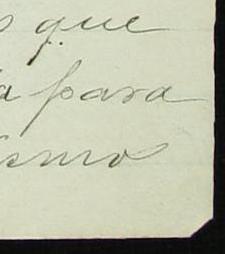 s que
a para
ismo